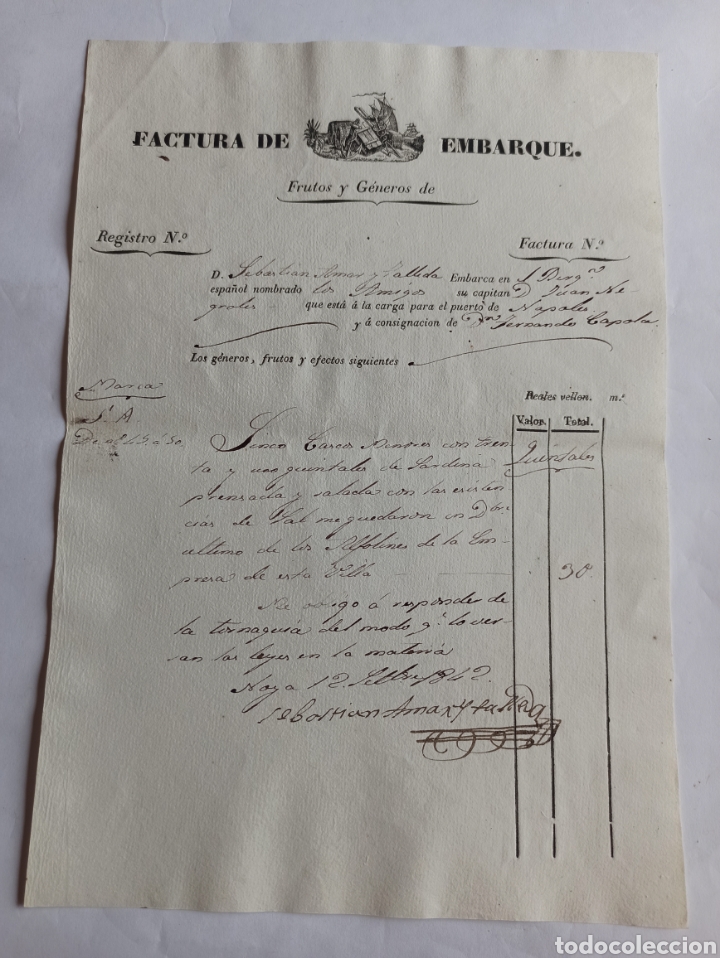 FACTURA DE EMBARQUE.
Frutos y Géneros de
Registro N.º Factura N.º
D. Sebastian Amar y Tallida Embarca en
español nombrado los Amigos su capitan D.n Juan Ne-
groles que está á la carga para el puerto de Napoles
y á consignacion de D.n Fernando Capola.
Los géneros, frutos y efectos siguientes
Marca
Reales vellon. m.s
Valor. Total.
S. A
Sinco Cascos con tren-
ta y uno quintales de Sardina Quintales
prensada y salada con las existen
cias de Sal me quedaron en Dbre
ultimo de los Alfolines de la Em-
presa de esta Villa 30.
Me obigo á responder de
la tornaguia del modo q.e lo ver-
san las leyes en la materia
Noya 12 Setbre 1842.
Sebastian Amar y tallida
todocoleccion